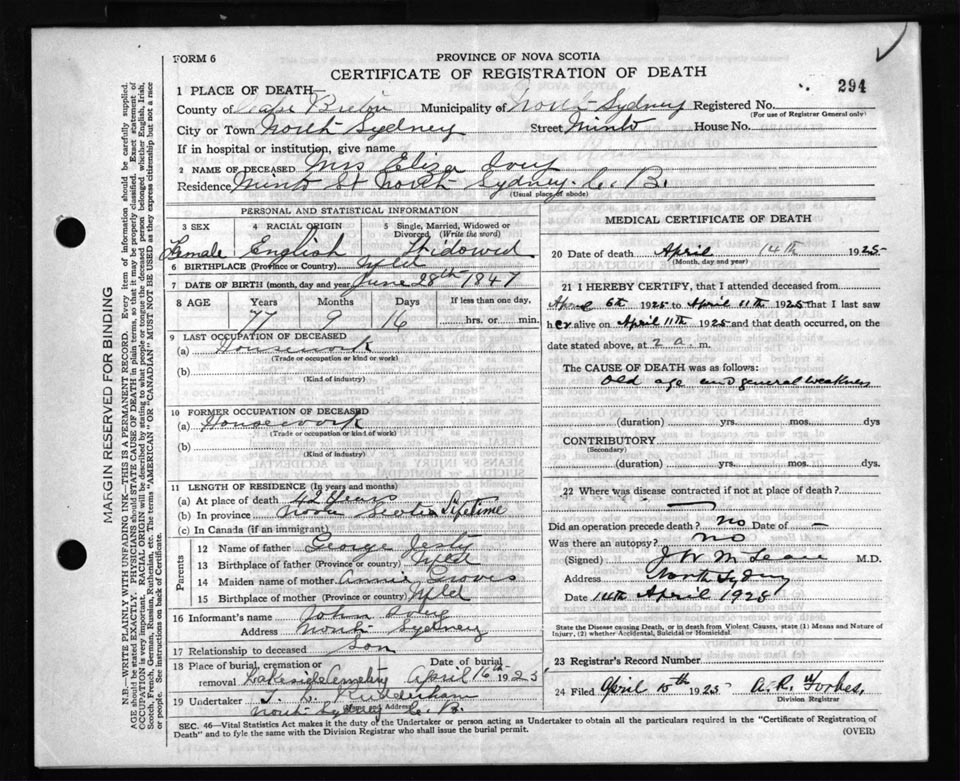 FORM 6
PROVINCE OF NOVA SCOTIA
CERTIFICATE OF REGISTRATION OF DEATH
294
1 PLACE OF DEATH—
County of Cape Breton Municipality of North Sydney Registered No.
(For use of Registrar General only)
City or Town North Sydney Street Minto House No.
If in hospital or institution, give name
2 NAME OF DECEASED Mrs Eliza
Residence Minto St North Sydney. C. B.
(Usual place of abode)
PERSONAL AND STATISTICAL INFORMATION
3 SEX 4 RACIAL ORIGIN 5 Single, Married, Widowed or Divorced (Write the word)
Female English Widowed
6 BIRTHPLACE (Province or Country) Nfld
7 DATE OF BIRTH (month, day and year) June 28th 1847
8 AGE Years Months Days If less than one day,
77 9 16 hrs. or min.
9 LAST OCCUPATION OF DECEASED
(a) Housework
(Trade or occupation or kind or work)
(b)
(Kind of industry)
10 FORMER OCCUPATION OF DECEASED
(a) Housework
(Trade or occupation or kind of work)
(b)
(Kind of industry)
11 LENGTH OF RESIDENCE (In years and months)
(a) At place of death 42 Years
(b) In province Nova Scotia Lifetime
(c) In Canada (if an immigrant)
Parents
12 Name of father George Jesty
13 Birthplace of father (Province or country) Nfld
14 Maiden name of mother Annie Groves
15 Birthplace of mother (Province or country) Nfld
16 Informant's name John
Address North Sydney
17 Relationship to deceased Son
18 Place of burial, cremation or removal Lakeside Cemetery Date of burial April 16th 1925
19 Undertaker T. C. Rudderham
North Sydney C. B.
MEDICAL CERTIFICATE OF DEATH
20 Date of death April 14th 1925
(Month, day and year)
21 I HEREBY CERTIFY, that I attended deceased from
April 6th 1925 to April 11th 1925 that I last saw
her alive on April 11th 1925 and that death occurred, on
date stated above, at 2 a. m.
The CAUSE OF DEATH was as follows:
Old age and general weakness
(duration) yrs. mos. dys
CONTRIBUTORY
(Secondary)
(duration) yrs. mos. dys.
22 Where was disease contracted if not at place of death?
Did an operation precede death? no Date of —
Was there an autopsy? no
(Signed) M.D.
Address North Sydney
Date 14th April 1925
State the Disease causing Death, or in death from Violent Causes, state (1) Means and Nature of Injury, (2) whether Accidental, Suicidal or Homicidal.
23 Registrar's Record Number
24 Filed April 15th 1925 A. R. Forbes,
Division Registrar
SEC. 46—Vital Statistics Act makes it the duty of the Undertaker or person acting as Undertaker to obtain all the particulars required in the "Certificate of Registration of
Death" and to fyle the same with the Division Registrar who shall issue the burial permit.
(OVER)
MARGIN RESERVED FOR BINDING
N.B.—WRITE PLAINLY WITH UNFADING INK—THIS IS A PERMANENT RECORD. Every item of information should be carefully supplied.
AGE should be stated EXACTLY. PHYSICIANS should STATE CAUSE OF DEATH in plain terms, so that it may be properly classified. Exact statement of
OCCUPATION is very important. RACIAL ORIGIN will be described by stating to what people or tongue the deceased person belonged whether English, Irish,
Scotch, French, German, Russian, Ruthenian, etc. The terms "AMERICAN" OR "CANADIAN" MUST NOT BE USED as they express citizenship but not a race
or people. See instructions on back of Certificate.